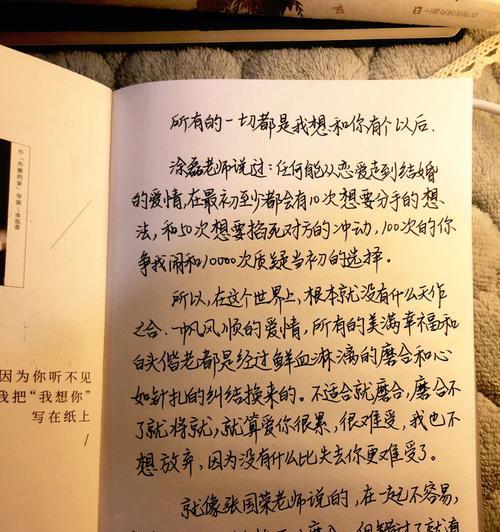 《外婆的家》导演\李廷香
因为你听不见
我把“我想你”
写在纸上
所有的一切都是我想和你有个以后.
涂磊老师说过:任何能从恋爱走到结婚
的爱情,在最初至少都会有10次想要分手的想
法,和50次想要掐死对方的冲动,100次的你
争我闹和10000次质疑当初的选择。
所以,在这个世界上,根本就没有什么天作
之合.一帆风顺的爱情,所有的美满幸福和
白头偕老都是经过鲜血淋漓的磨合和心
如针扎的纠结换来的。不适合就磨合,磨合不
了就将就,就算爱你很累,很难受,我也不
想放弃,因为没有什么比失去你更难受了。
就像张国荣老师说的,在一起不容易,